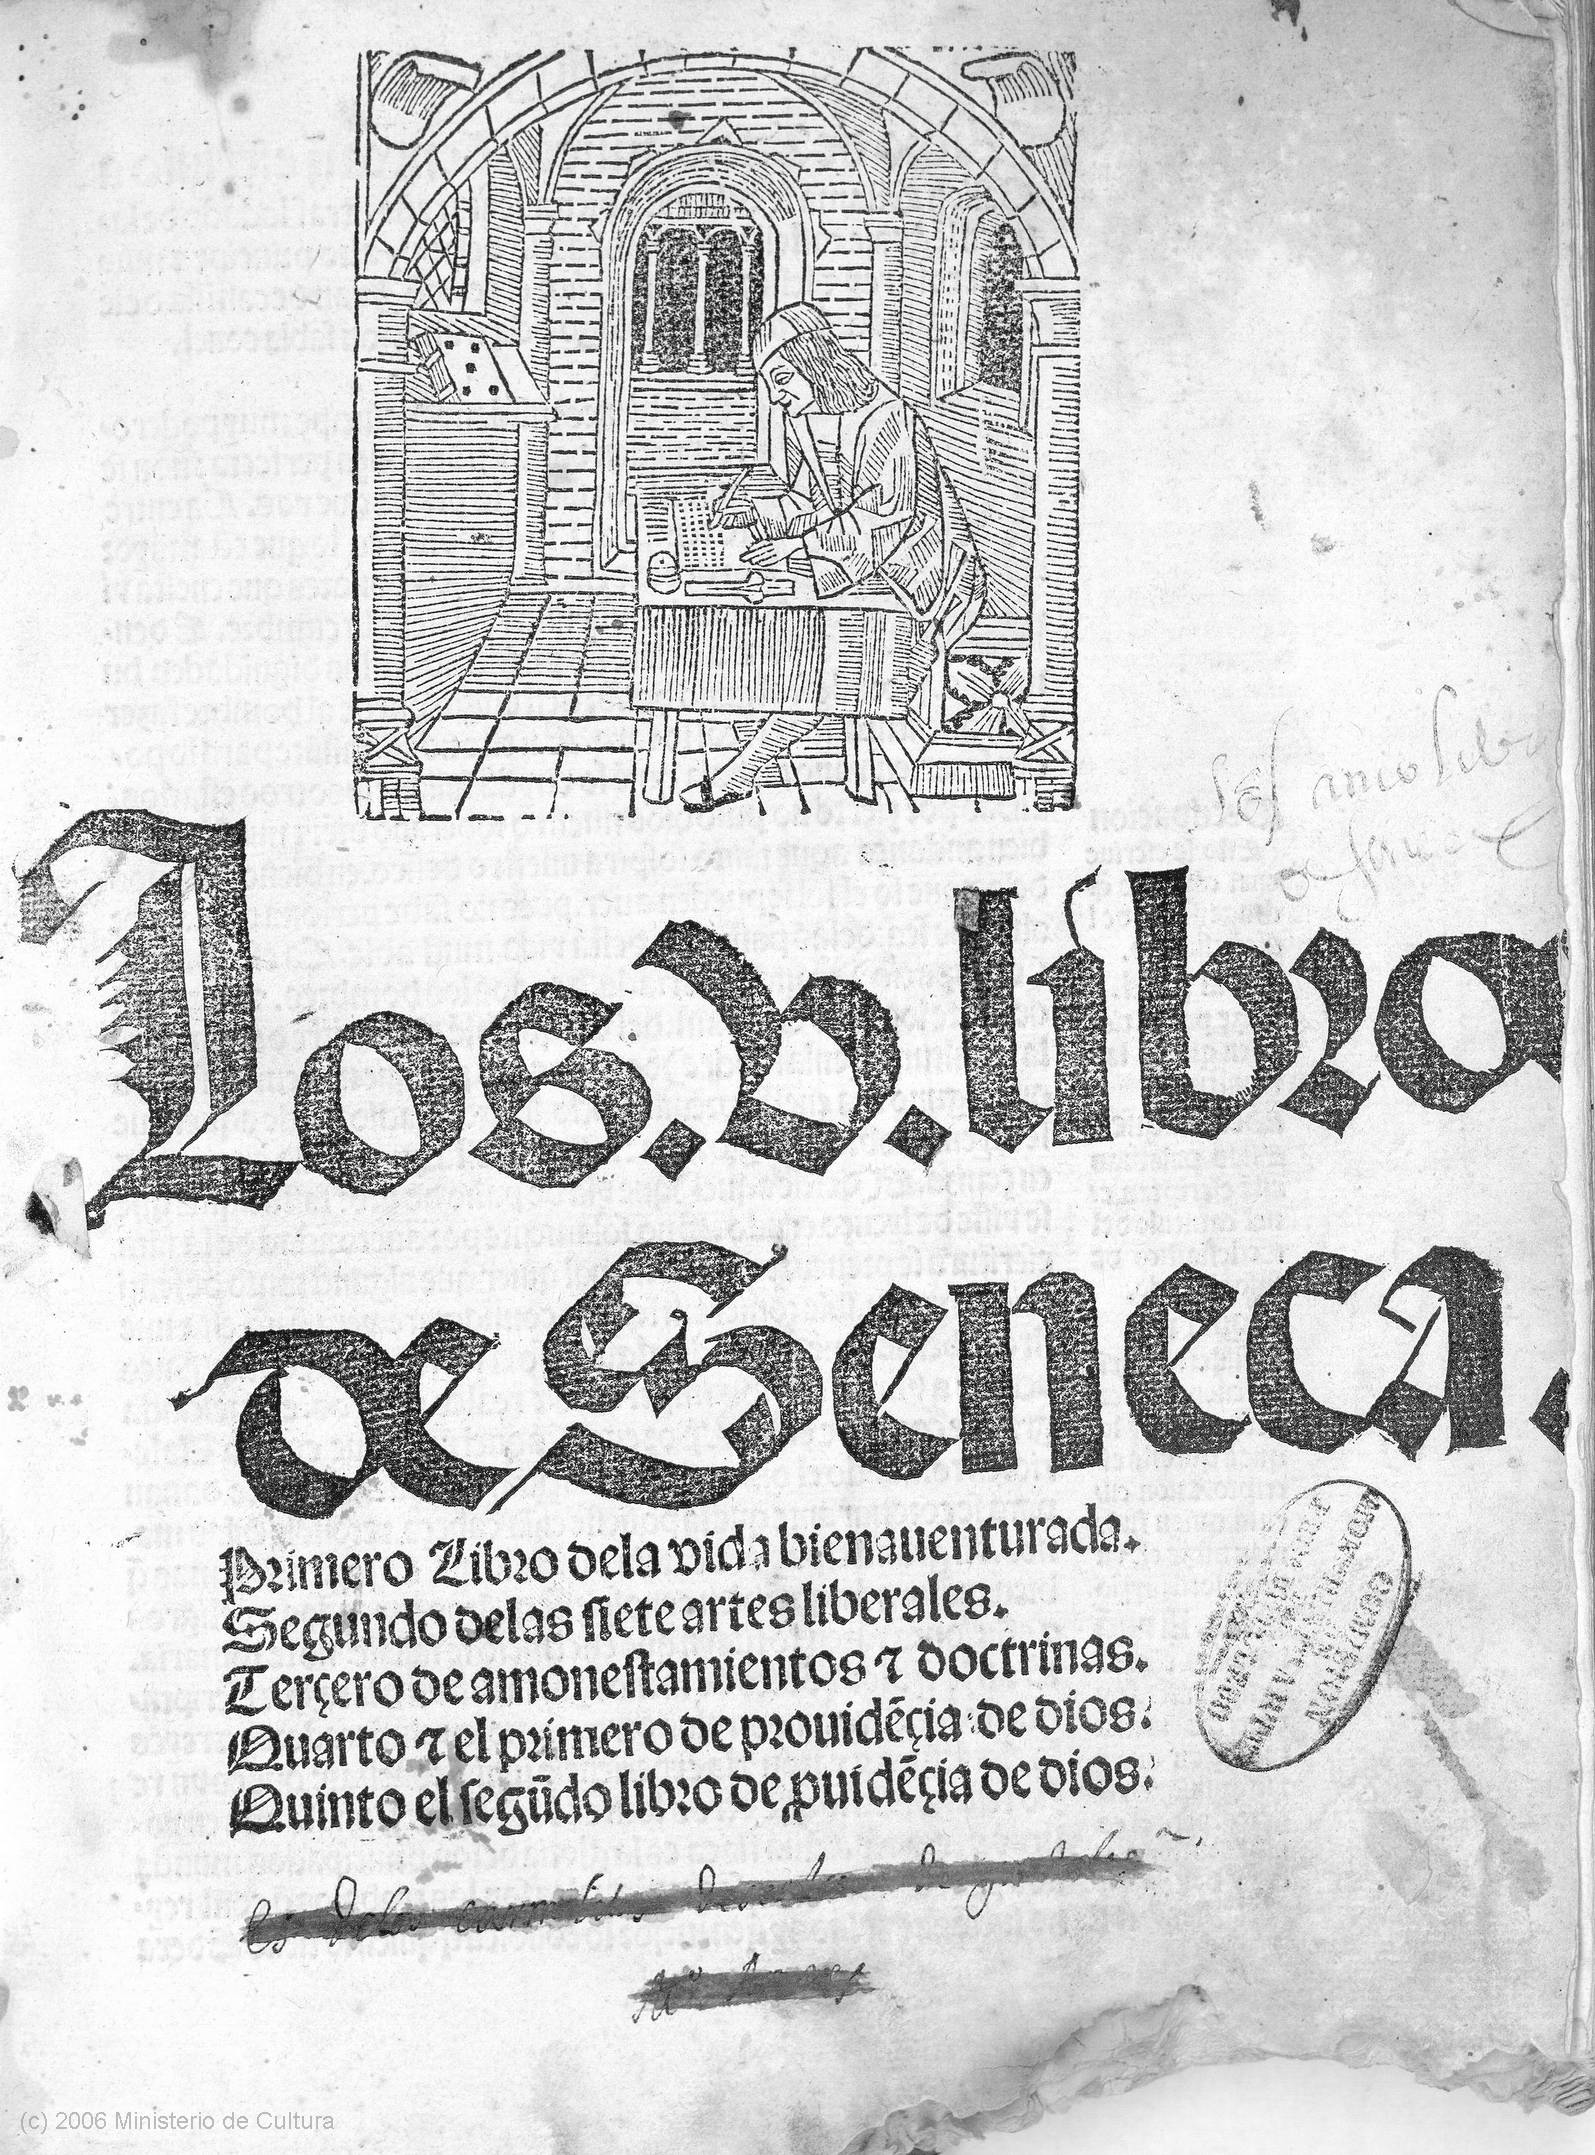 Los .V. libro
de Seneca.
Primero Libro dela vida bienauenturada.
Segundo delas siete artes liberales.
Terçero de amonestamientos ⁊ doctrinas.
Quarto ⁊ el primero de prouidẽçia de dios.
Quinto el segũdo libro de ꝓuidẽçia de dios.
Es delos
(c) 2006 Ministerio de Cultura